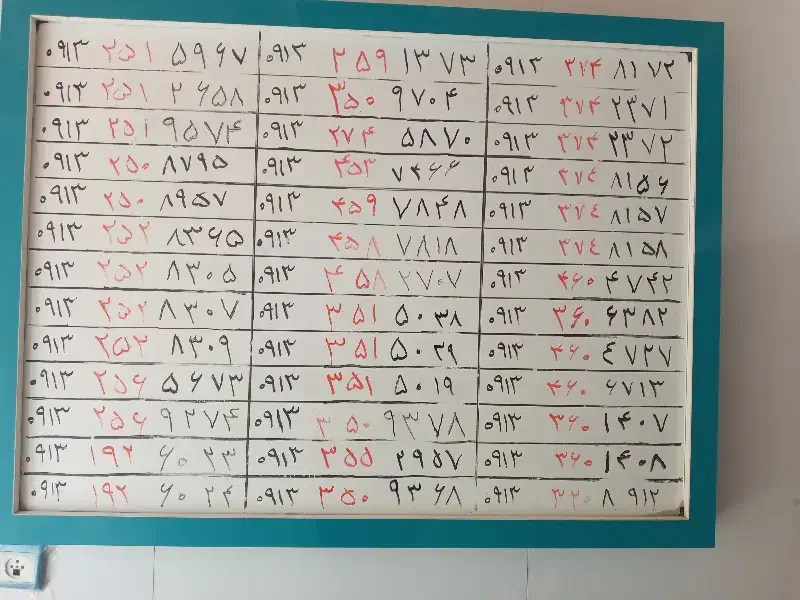 ۰۹۱۳ ۲۵۱ ۵۹۶۷ ۰۹۱۳ ۲۵۹ ۱۳۷۳ ۰۹۱۳ ۲۷۴ ۸۱۷۲
۰۹۱۳ ۲۵۱ ۲۶۵۸ ۰۹۱۳ ۳۵۰ ۹۷۰۴ ۰۹۱۳ ۲۷۴ ۲۳۷۱
۰۹۱۳ ۲۵۱ ۹۵۷۴ ۰۹۱۳ ۲۷۴ ۵۸۷۰ ۰۹۱۳ ۲۷۴ ۲۳۷۲
۰۹۱۳ ۲۵۰ ۸۷۹۵ ۰۹۱۳ ۴۵۳ ۷۴۶۶ ۰۹۱۳ ۲۷۴ ۸۱۵۶
۰۹۱۳ ۲۵۰ ۸۹۵۷ ۰۹۱۳ ۴۵۹ ۷۸۴۸ ۰۹۱۳ ۲۷۴ ۸۱۵۷
۰۹۱۳ ۲۵۲ ۸۳۶۵ ۰۹۱۳ ۴۵۸ ۷۸۱۸ ۰۹۱۳ ۲۷۴ ۸۱۵۸
۰۹۱۳ ۲۵۲ ۸۳۰۵ ۰۹۱۳ ۴۵۸ ۲۷۰۷ ۰۹۱۳ ۴۶۰ ۴۷۴۲
۰۹۱۳ ۲۵۲ ۸۳۰۷ ۰۹۱۳ ۳۵۱ ۵۰۳۸ ۰۹۱۳ ۳۶۰ ۶۳۸۲
۰۹۱۳ ۲۵۲ ۸۳۰۹ ۰۹۱۳ ۳۵۱ ۵۰۲۹ ۰۹۱۳ ۴۶۰ ۴۷۲۷
۰۹۱۳ ۲۵۶ ۵۶۷۳ ۰۹۱۳ ۳۵۱ ۵۰۱۹ ۰۹۱۳ ۴۶۰ ۶۷۱۳
۰۹۱۳ ۲۵۶ ۹۲۷۴ ۰۹۱۳ ۳۵۰ ۹۳۷۸ ۰۹۱۳ ۳۶۰ ۱۴۰۷
۰۹۱۳ ۱۹۲ ۶۰۲۳ ۰۹۱۳ ۳۵۵ ۲۹۵۷ ۰۹۱۳ ۳۶۰ ۱۴۰۸
۰۹۱۳ ۱۹۲ ۶۰۲۴ ۰۹۱۳ ۳۵۰ ۹۳۶۸ ۰۹۱۳ ۳۲۰ ۸۹۱۲